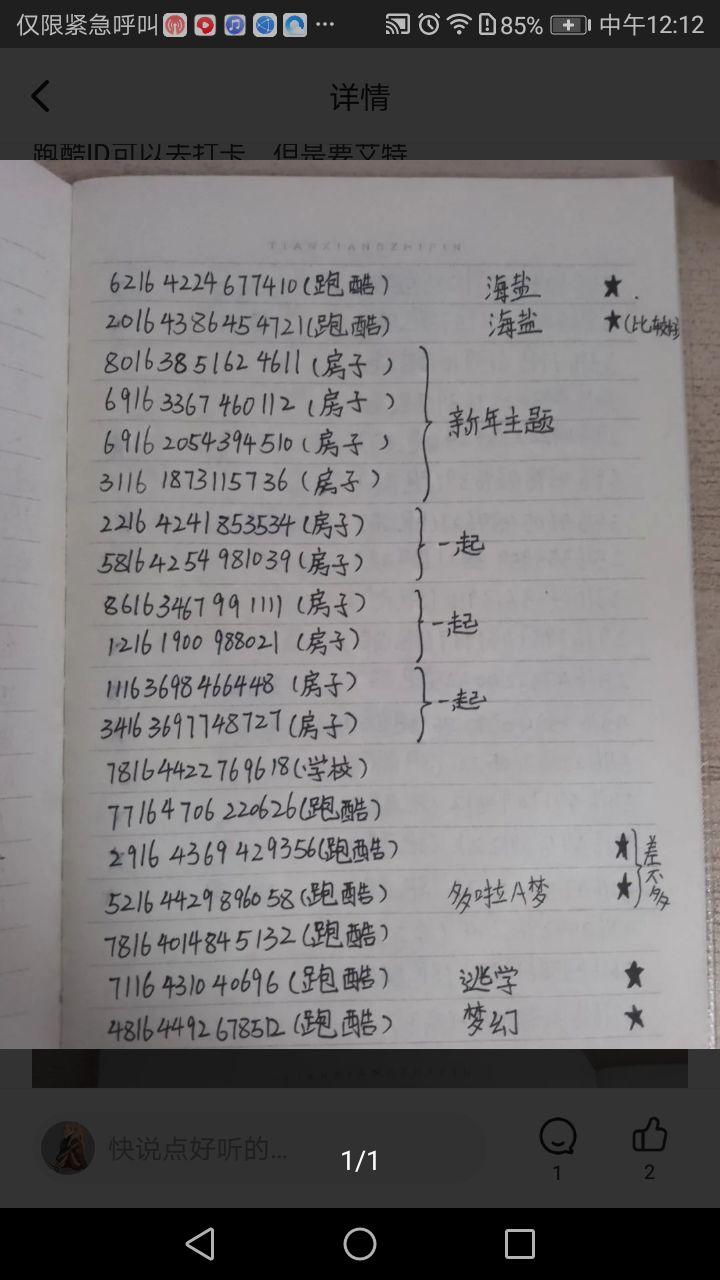 仅限紧急呼叫 ... 85% 中午12:12
详情
跑酷ID可以去打卡 但是要艾特
TIANXIANGZHIPIN
6216 4224677410(跑酷) 海盐 ★
2016 4386454721(跑酷) 海盐 ★(比较
8016 3851624611 (房子)
6916 3367460112 (房子)
新年主题
6916 2054394510 (房子)
3116 1873115736 (房子)
2216 4241853534 (房子)
一起
5816 4254981039 (房子)
8616 3467991111 (房子)
一起
1216 1900988021 (房子)
1116 3698466448 (房子)
一起
3416 3697748727 (房子)
7816 4422769618 (学校)
7716 4706220626 (跑酷)
2916 4369429356 (跑酷) ★
差不多
5216 4429896058 (跑酷) 多啦A梦 ★
7816 4014845132 (跑酷)
7116 431040696 (跑酷) 逃学 ★
4816 4492678512 (跑酷) 梦幻 ★
快说点好听的...
1/1
1
2